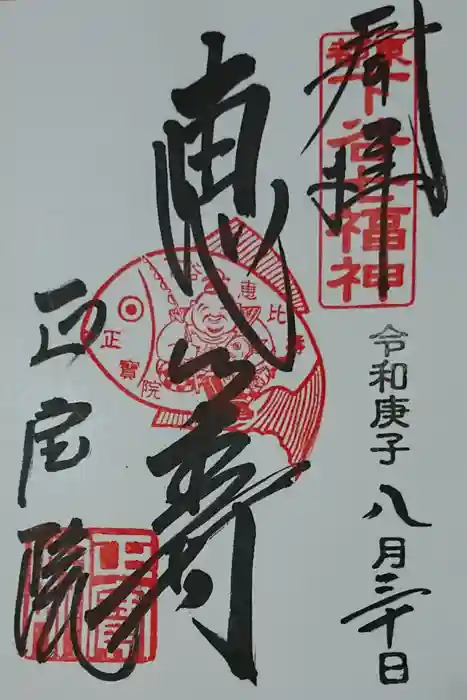 奉拝
東都下谷七福神
令和庚子八月三十日
恵比寿
谷 恵比寿
正寶院
正宝院
正寶院